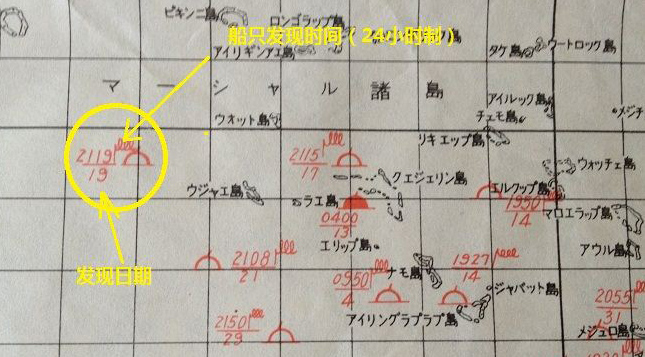 ビキンニ島
ロンゴラップ島
船只发现时间（24小时制）
アイリギンアエ島
タケ島
ウートロック島
マーシャル諸島
アイルック島
ウオット島
チェモ島
メジチ
2119
19
2115
17
リキエップ島
ウォッチェ島
クェジェリン島
ウジャエ島
エルクップ島
ラエ島
1950
14
マロエラップ島
0400
13
发现日期
2108
21
エリップ島
1927
14
アウル島
0950
4
ナモ島
ジャバット島
2055
31
2150
29
アイリングラプラプ島
メジュロ島